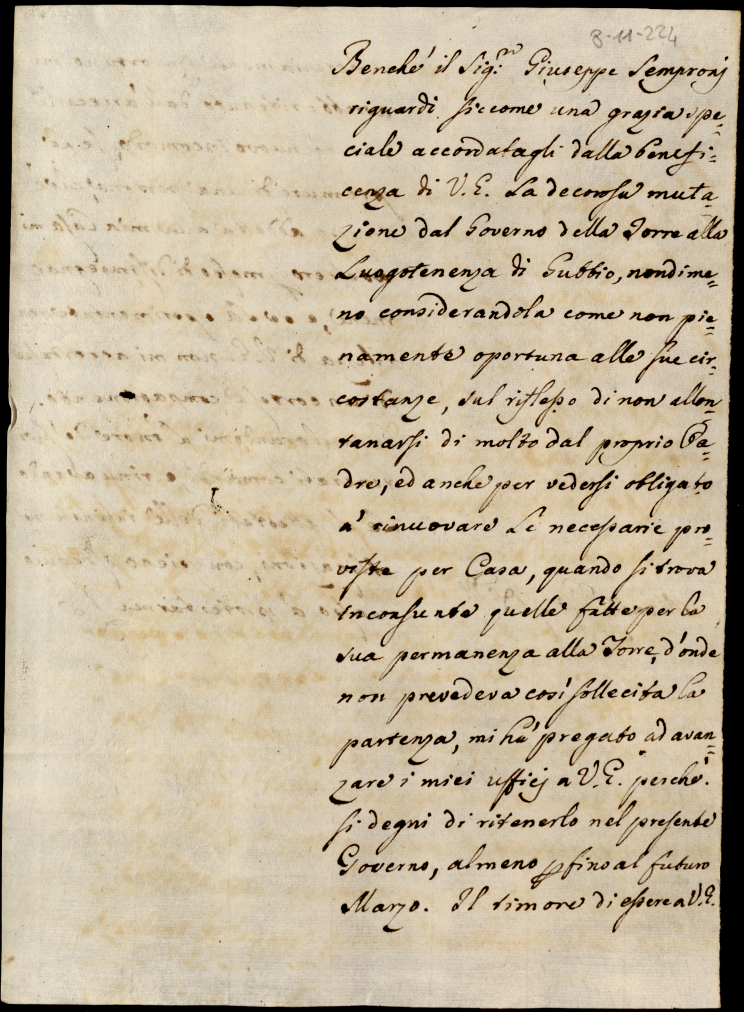 8-11-224
Benche' il Sig:re Giuseppe Sempronj
riguardi siccome una grazia spe=
ciale accordatagli dalla benefi=
cenza di V.E. La decorosa muta=
zione dal Governo della Torre alla
Luogotenenza di Gubbio, nondime=
no considerandola come non pie=
namente oportuna alle sue cir=
costanze, sul riflesso di non allon=
tanarsi di molto dal proprio Pa=
dre, ed anche per vedersi obligato
a' rinuovare Le necessarie pro=
viste per Casa, quando si trova
inconsunte quelle fatte per la
sua permanenza alla Torre, d'onde
non prevedeva cosi' sollecita la
partenza, mi ha' pregato ad avan=
zare i miei ufficj a V.E. perche'
si degni di ritenerlo nel presente
Governo, almeno p fino al futuro
Marzo. Il timore di essere a V.E.